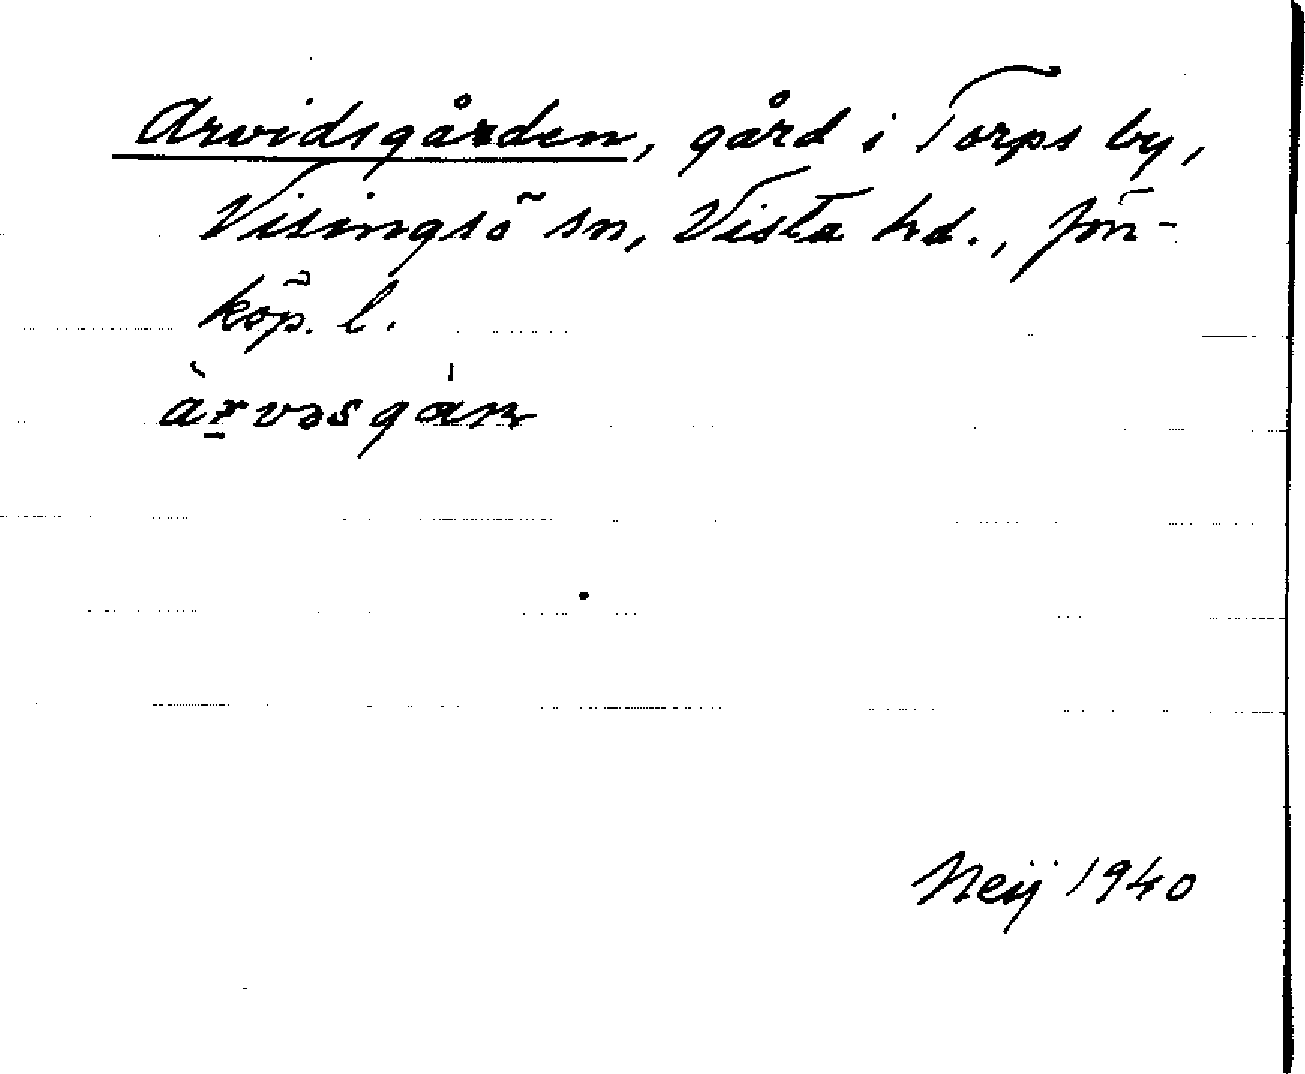 Arvidsgården, gård i Torps by,
Visingsö sn, Vista hd., Jön-
köp. l.
àr̲vəsgán
Neij 1940